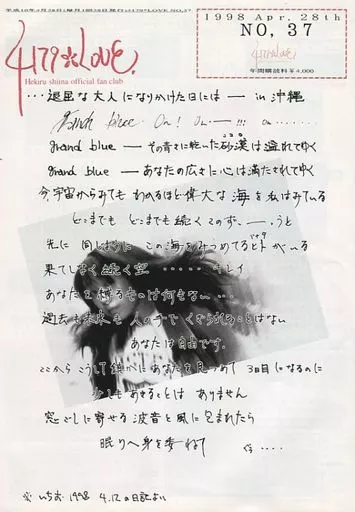 1998 Apr. 28th
NO, 37
4179☆LOVE
年間購読料¥4,000
4179☆LOVE
Hekiru shiina official fan club
・・・退屈な大人になりかけた日には ー in 沖縄
grand blue ー On! On ー !!! on ........
grand blue ー その青さに乾いた砂漠は溢れてゆく
grand blue ー あなたの広さに心は満たされてゆく
今、宇宙からみても わかるほど偉大な海を私はみている
どこまでも どこまでも続く このずーーっと
先に 同じように この海をみつめてるヒトがいる
果てしなく続く空 ‥‥‥ キレイ
あなたを縛るものは何もない‥‥
過去も未来も 人の手でくずされることはない
あなたは自由です。
ここから こうして静かにあなたを見つめて 3日目になるのに
少しもあきることは ありません
窓ごしに寄せる波音と風に包まれたら
眠りへ身を委ねて